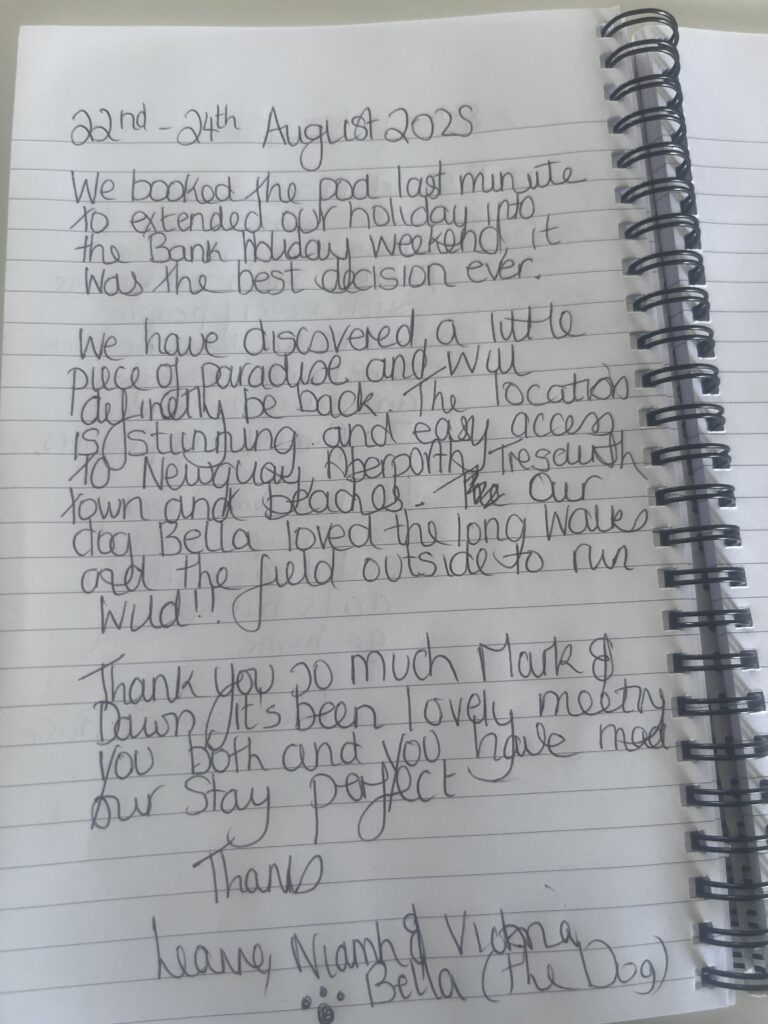 22nd - 24th August 2025
We booked the pod last minute
to extended our holiday into
the Bank holiday weekend, it
was the best decision ever.
We have discovered a little
piece of paradise and will
definetly be back. The location
is stunning and easy access
to Newquay, Aberporth, Tresaith
town and beaches. Our
dog Bella loved the long walks
and the field outside to run
wild!!
Thank you so much Mark &
Dawn, it's been lovely meeting
you both and you have mad
our stay perfect
Thanks
Leanne, Niamh & Victoria
Bella (the Dog)